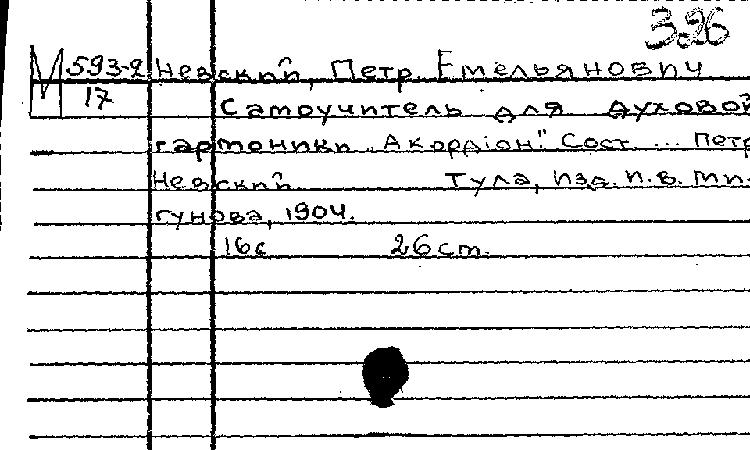 3.26
М 593-2 Невский, Петр Емельянович
17 Самоучитель для духовой
гармоники „Акордіон" Сост. ... Петр
Невский Тула, изд. п.в. Ми-
гунова, 1904.
16с 26 cm.